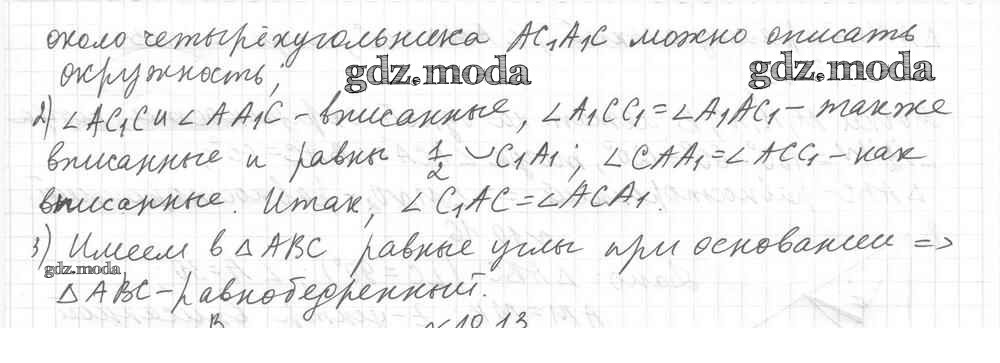 около четырёхугольника AC₁A₁C можно описать
окружность;
gdz.moda
gdz.moda
2) ∠AC₁C и ∠AA₁C – вписанные, ∠A₁CC₁ = ∠A₁AC₁ – также
вписанные и равны 1/2 ◡C₁A₁; ∠CAA₁ = ∠ACC₁ – как
вписанные. Итак, ∠C₁AC = ∠ACA₁.
3) Имеем в △ABC равные углы при основании =>
gdz.moda
△ABC – равнобедренный.